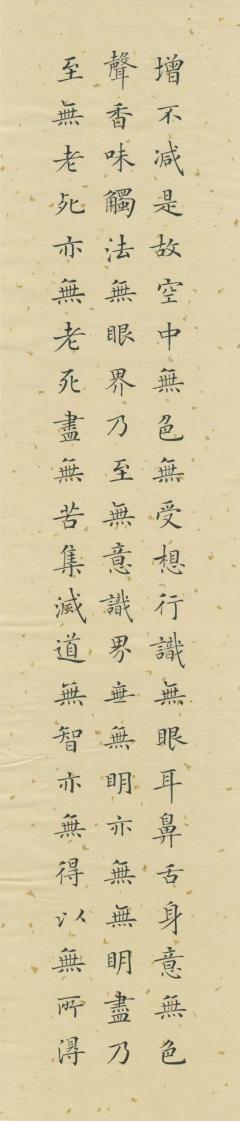 增不减是故空中無色無受想行識無眼耳鼻舌身意無色
聲香味觸法無眼界乃至無意識界無無明亦無無明盡乃
至無老死亦無老死盡無苦集滅道無智亦無得以無所得